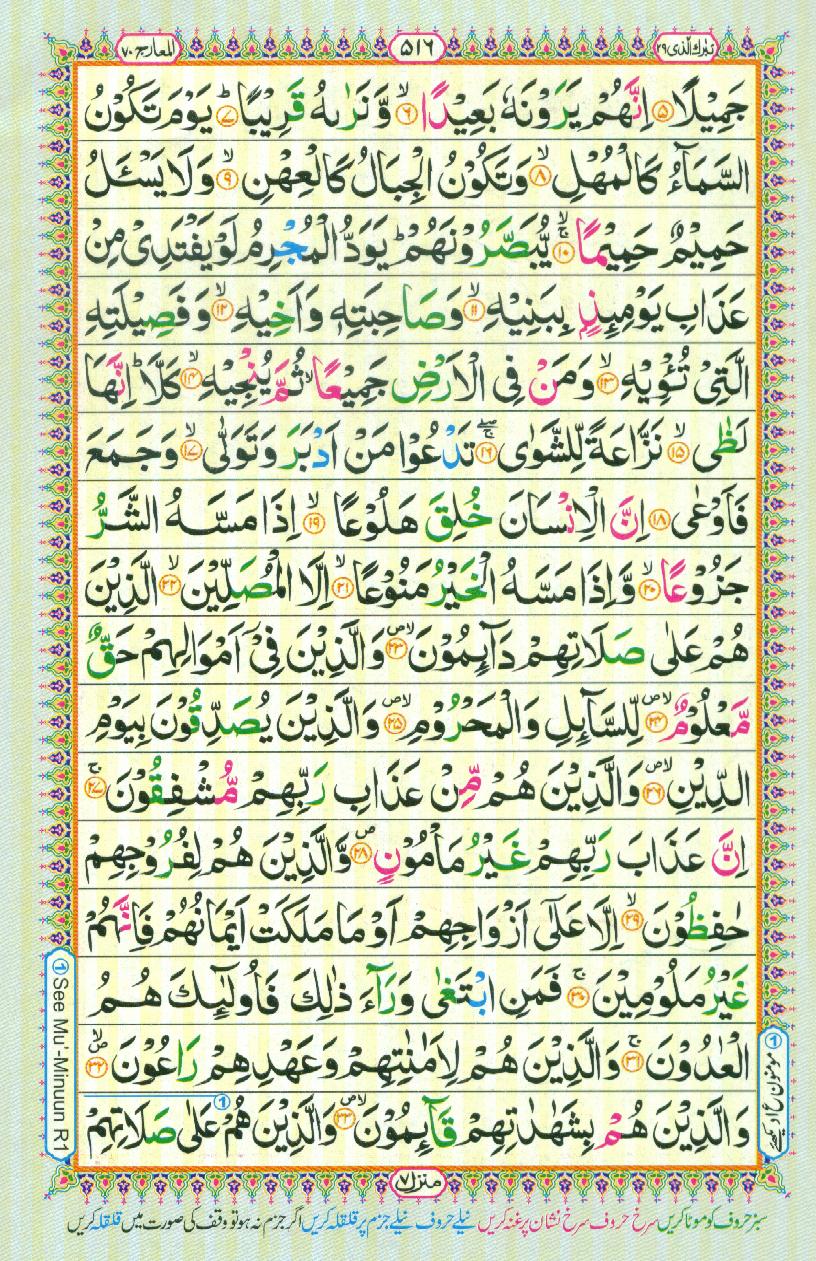 تبٰرك الذی ٢٩
٥١٦
المعارج ٧٠
جَمِيْلًا ﴿٥﴾ اِنَّهُمْ يَرَوْنَهٗ بَعِيْدًا ۙ﴿٦﴾ وَّنَرٰىهُ قَرِيْبًا ؕ﴿٧﴾ يَوْمَ تَكُوْنُ
السَّمَآءُ كَالْمُهْلِ ۙ﴿٨﴾ وَتَكُوْنُ الْجِبَالُ كَالْعِهْنِ ۙ﴿٩﴾ وَلَا يَسْـَٔلُ
حَمِيْمٌ حَمِيْمًا ۚۖ﴿١٠﴾ يُّبَصَّرُوْنَهُمْ ؕ يَوَدُّ الْمُجْرِمُ لَوْ يَفْتَدِىْ مِنْ
عَذَابِ يَوْمِئِذٍۭ بِبَنِيْهِ ۙ﴿١١﴾ وَصَاحِبَتِهٖ وَاَخِيْهِ ۙ﴿١٢﴾ وَفَصِيْلَتِهِ
الَّتِىْ تُـْٔوِيْهِ ۙ﴿١٣﴾ وَمَنْ فِى الْاَرْضِ جَمِيْعًا ۙ ثُمَّ يُنْجِيْهِ ۙ﴿١٤﴾ كَلَّا ؕ اِنَّهَا
لَظٰى ۙ﴿١٥﴾ نَزَّاعَةً لِّلشَّوٰى ۚۖ﴿١٦﴾ تَدْعُوْا مَنْ اَدْبَرَ وَتَوَلّٰى ۙ﴿١٧﴾ وَجَمَعَ
فَاَوْعٰى ﴿١٨﴾ اِنَّ الْاِنْسَانَ خُلِقَ هَلُوْعًا ۙ﴿١٩﴾ اِذَا مَسَّهُ الشَّرُّ
جَزُوْعًا ۙ﴿٢٠﴾ وَّاِذَا مَسَّهُ الْخَيْرُ مَنُوْعًا ۙ﴿٢١﴾ اِلَّا الْمُصَلِّيْنَ ۙ﴿٢٢﴾ الَّذِيْنَ
هُمْ عَلٰى صَلَاتِهِمْ دَآئِمُوْنَ ۪ۙ﴿٢٣﴾ وَالَّذِيْنَ فِىْٓ اَمْوَالِهِمْ حَقٌّ
مَّعْلُوْمٌ ۪ۙ﴿٢٤﴾ لِّلسَّآئِلِ وَالْمَحْرُوْمِ ۪ۙ﴿٢٥﴾ وَالَّذِيْنَ يُصَدِّقُوْنَ بِيَوْمِ
الدِّيْنِ ۪ۙ﴿٢٦﴾ وَالَّذِيْنَ هُمْ مِّنْ عَذَابِ رَبِّهِمْ مُّشْفِقُوْنَ ۚ﴿٢٧﴾
اِنَّ عَذَابَ رَبِّهِمْ غَيْرُ مَاْمُوْنٍ ۪﴿٢٨﴾ وَّالَّذِيْنَ هُمْ لِفُرُوْجِهِمْ
حٰفِظُوْنَ ۙ﴿٢٩﴾ اِلَّا عَلٰٓى اَزْوَاجِهِمْ اَوْ مَا مَلَكَتْ اَيْمَانُهُمْ فَاِنَّهُمْ
غَيْرُ مَلُوْمِيْنَ ۚ﴿٣٠﴾ فَمَنِ ابْتَغٰى وَرَآءَ ذٰلِكَ فَاُولٰٓئِكَ هُمُ
الْعٰدُوْنَ ۚ﴿٣١﴾ وَالَّذِيْنَ هُمْ لِاَمٰنٰتِهِمْ وَعَهْدِهِمْ رَاعُوْنَ ۪ۙ﴿٣٢﴾
وَالَّذِيْنَ هُمْ بِشَهٰدٰتِهِمْ قَآئِمُوْنَ ۪ۙ﴿٣٣﴾ وَالَّذِيْنَ هُمْ عَلٰى صَلَاتِهِمْ ①
① مومنون ع اد یکھئے
① See Mu'-Minuun R1
منزل ٧
سبز حروف کو موٹا کریں سرخ حروف سرخ نشان پر غنہ کریں نیلے حروف نیلے جزم پر قلقلہ کریں اگر جزم نہ ہو تو وقف کی صورت میں قلقلہ کریں